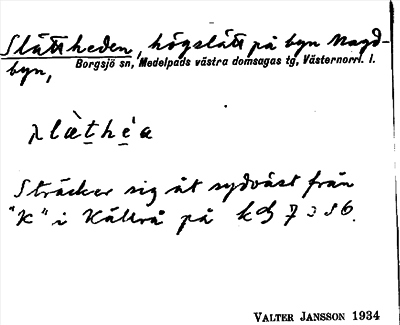 Slåttheden, högslått på byn Nagd-
byn, Borgsjö sn, Medelpads västra domsagas tg, Västernorrl. l.
Sträcker sig åt sydväst från
"K" i Källrå på kbl 7
VALTER JANSSON 1934